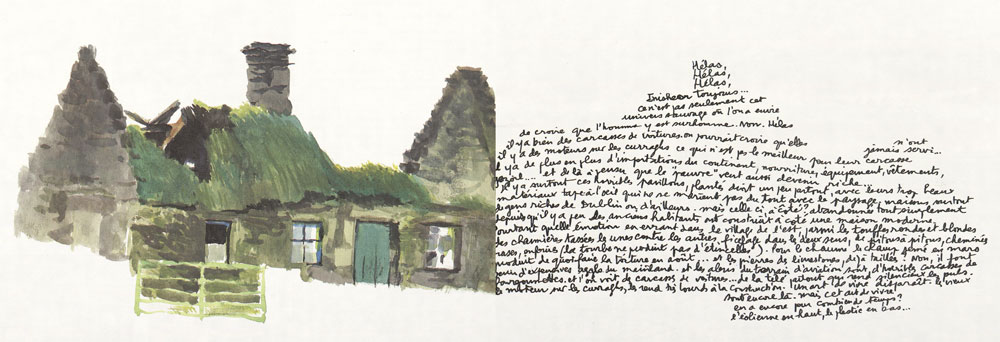 Hélas,
Hélas,
Hélas,
Inisheer toujours...
ce n'est pas seulement cet
univers sauvage où l'on a envie
de croire que l'homme y est surhomme. Non. Hélas
il y a bien des carcasses de voitures. on pourrait croire qu'elles n'ont jamais servi...
il y a des moteurs sur les curraghs ce qui n'est pas le meilleur pour leur carcasse
il y a de plus en plus d'importations du continent, nourriture, équipement, vêtements,
pétrole... et de là à penser que le "pauvre" veut aussi devenir riche...
il y a surtout ces horribles pavillons, plantés dirait un peu partout, avec leurs trop beaux
matériaux tape à l'œil qui ne se marient pas du tout avec le paysage, maisons surtout
de gens riches de Dublin ou d'ailleurs. mais celle ci, à côté? abandonnée tout simplement
depuis qu'il y a peu les anciens habitants ont construit à côté une maison moderne.
pourtant quelle émotion en errant dans le village de l'est, parmi les touffes rondes et blondes
des chaumières tassées les unes contre les autres, ficelage dans les deux sens, de cheminées
rases, (la tombe ne perdent pas d'étincelles). Pour le chaume le champ gris au mars
produit de quoi faire la toiture en août,... et les pierres de limestones, déjà taillées? Non, il font
venir d'expensives du mainland. et les abords du terrain d'aviation sont d'horribles carcasses de
camionnettes. et l'on voit des carcasses de voitures... de la télé surtout qui rend silencieux les pubs.
le moteur sur les curraghs, les rend trop lourds à la construction. Un art de vivre disparaît. les vieux
sont encore là. mais cet art de vivre
en a encore pour combien de temps?
l'éolienne en haut, le plastic en bas...